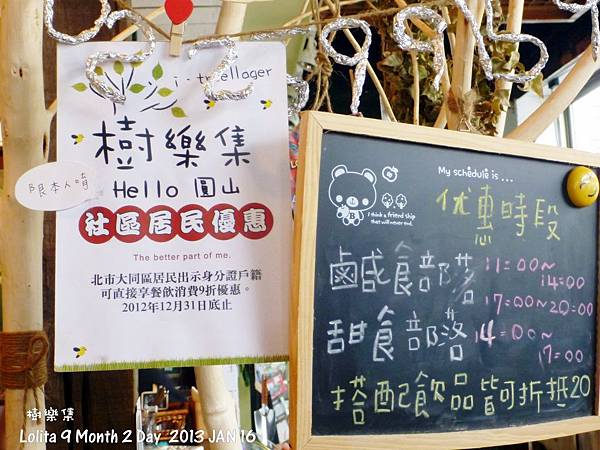 i-treellager
樹樂集
Hello 圓山
限本人唷
社區居民優惠
The better part of me.
北市大同區居民出示身分證戶籍
可直接享餐飲消費9折優惠。
2012年12月31日底止
My schedule is ...
I think a friendship
that will never end.
优惠時段
鹹食部落 11=00~14=00
17=00~20=00
甜食部落 14=00~
17=00
搭配飲品皆可折抵20
樹樂集
Lolita 9 Month 2 Day 2013 JAN 16